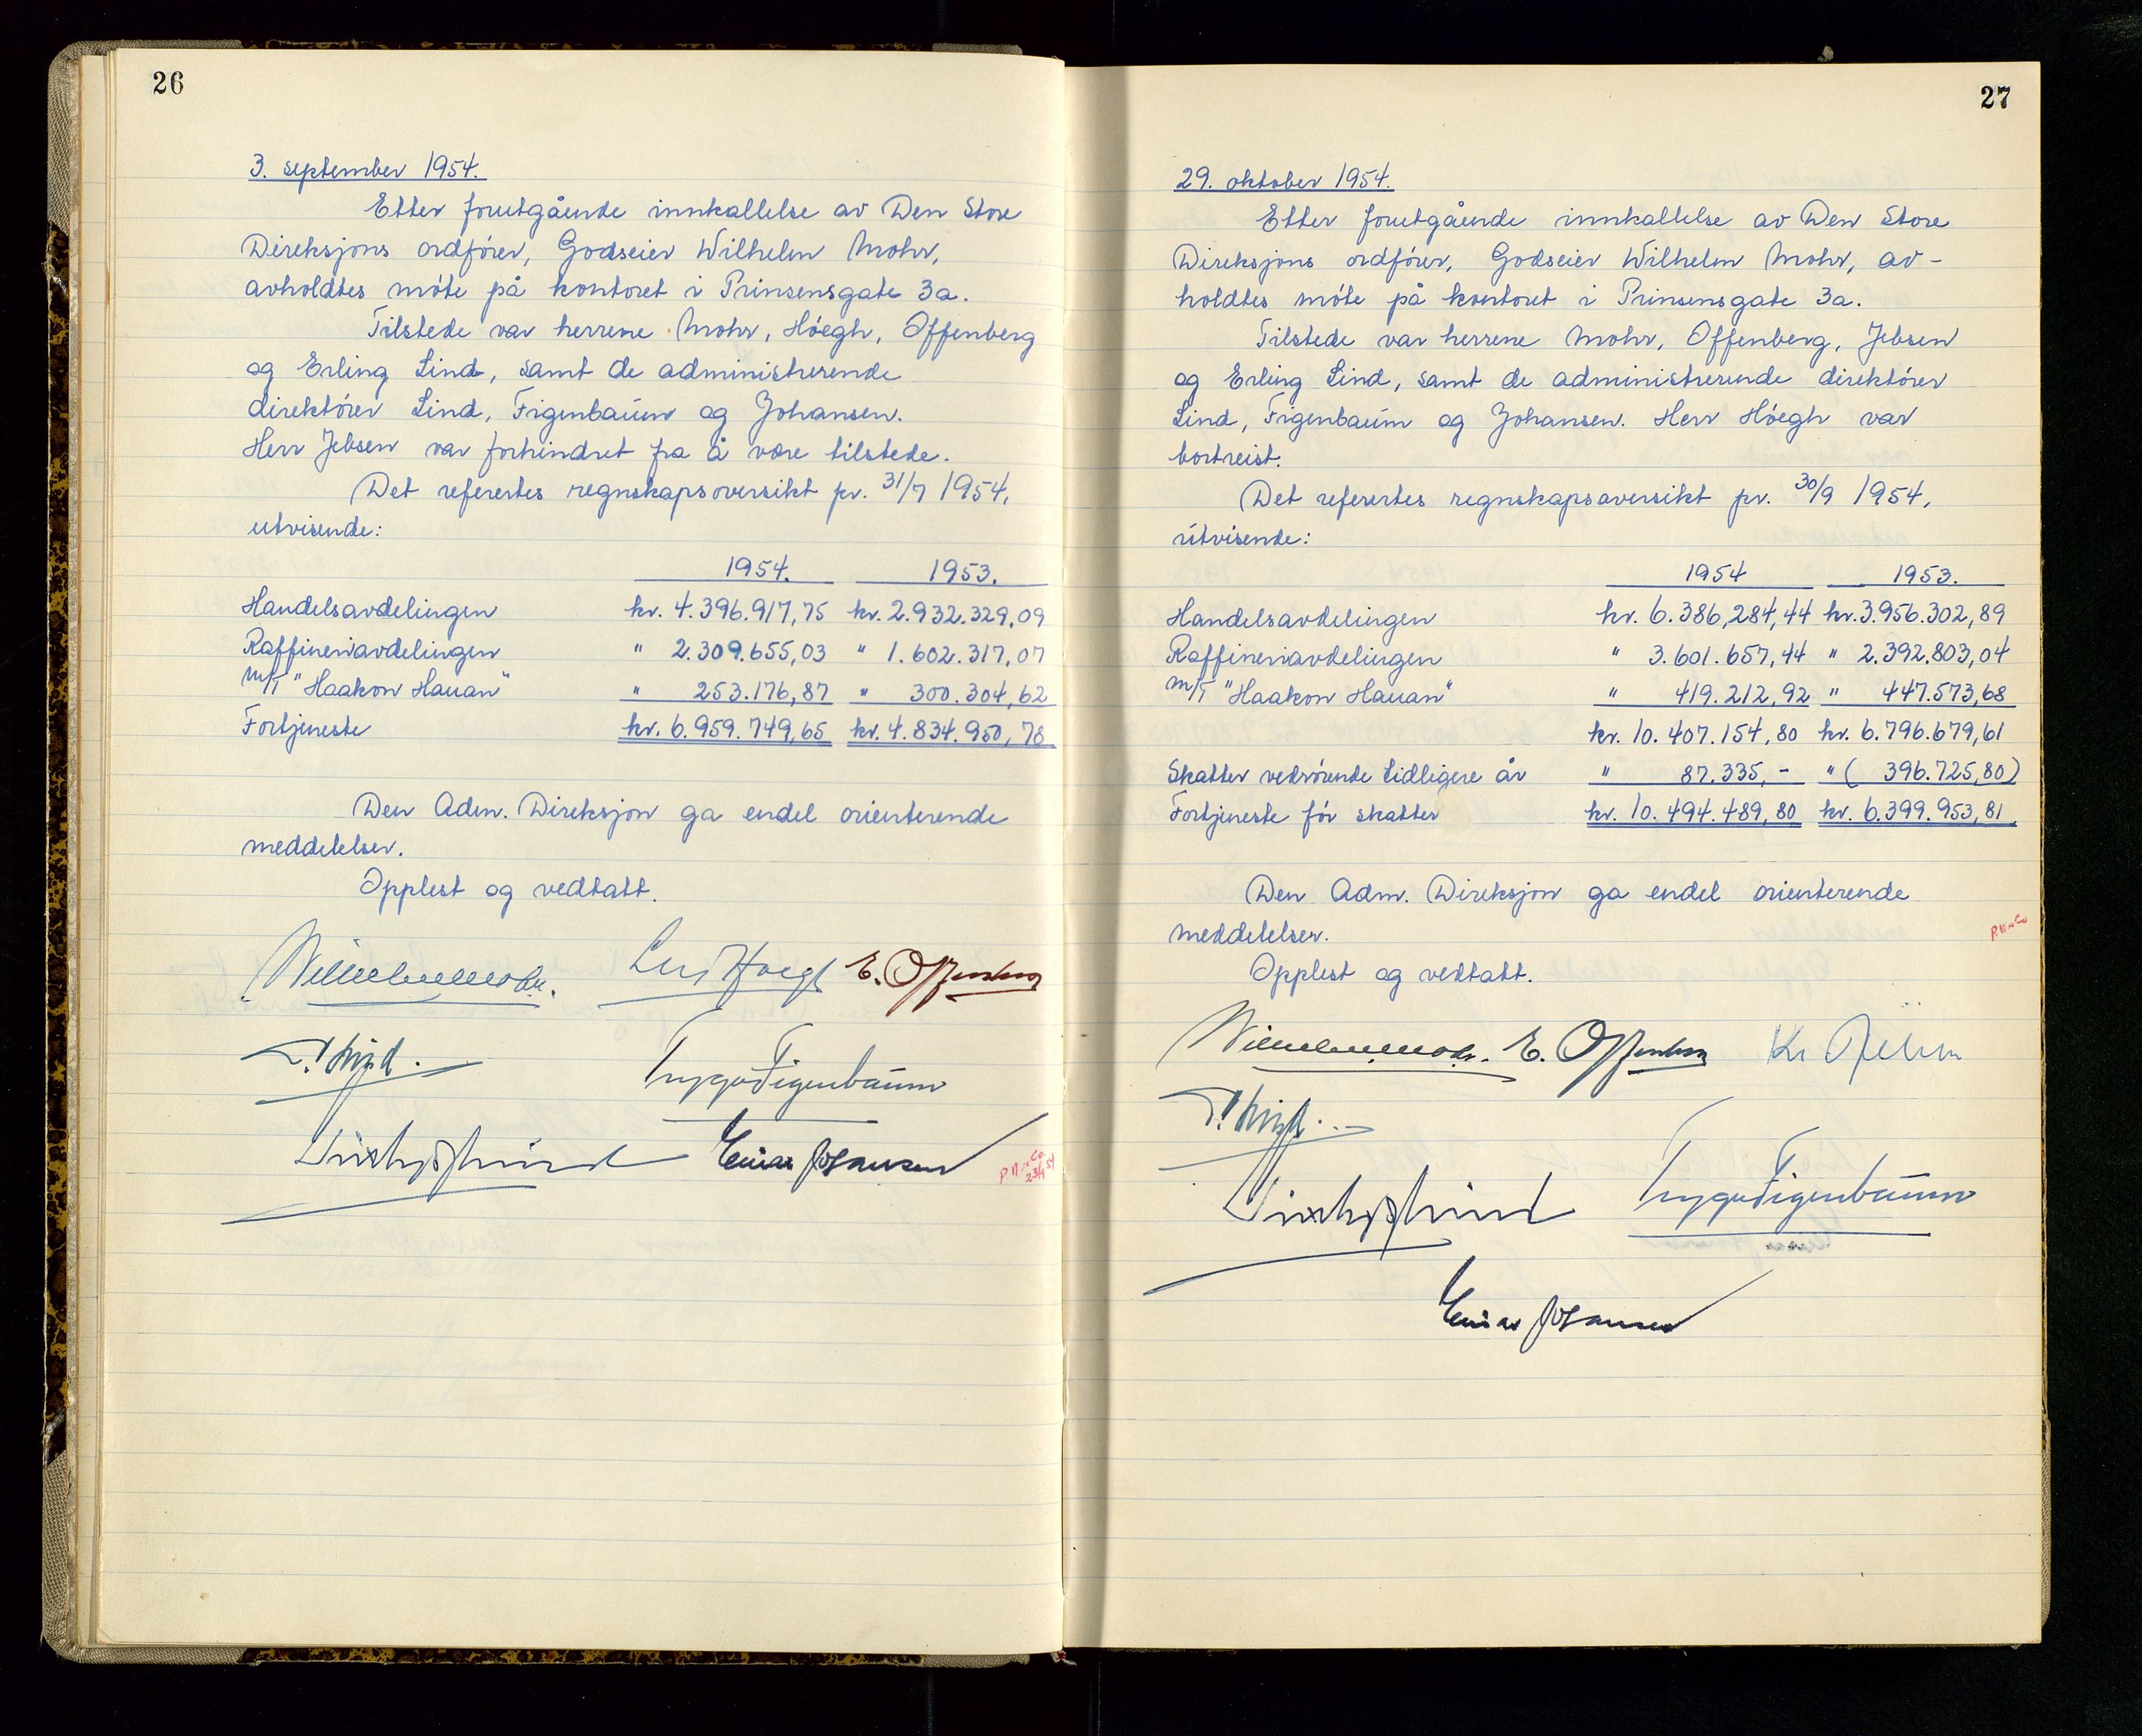 26
3. september 1954.
Etter forutgående innkallelse av Den Store
Direksjons ordfører, Godseier Wilhelm Mohr,
avholdtes møte på kontoret i Prinsensgate 3a.
Tilstede var herrene Mohr, Høegh, Offenberg
og Erling Lind, samt de administrerende
direktører Lind, Figenbaum og Johansen.
Herr Jebsen var forhindret fra å være tilstede.
Det refertes regnskapsoversikt pr. 31/7 1954,
utvisende:
1954. 1953.
Handelsavdelingen kr. 4.396.917,75 kr. 2.932.329,09
Raffineriavdelingen " 2.309.655,03 " 1.602.317,07
M/T "Haakon Hauan" " 253.176,87 " 300.304,62
Fortjeneste kr. 6.959.749,65 kr. 4.834.950,78
Den Adm. Direksjon ga endel orienterende
meddelelser.
Opplest og vedtatt.
Wilhelm Mohr. Leif Høegh E. Offenberg
E. Lind.
Trygve Figenbaum
Lind Einar Johansen
27
29. oktober 1954.
Etter forutgående innkallelse av Den Store
Direksjons ordfører, Godseier Wilhelm Mohr, av-
holdtes møte på kontoret i Prinsensgate 3a.
Tilstede var herrene Mohr, Offenberg, Jebsen
og Erling Lind, samt de administrerende direktører
Lind, Figenbaum og Johansen. Herr Høegh var
bortreist.
Det refertes regnskapsoversikt pr. 30/9 1954,
utvisende:
1954 1953.
Handelsavdelingen kr. 6.386,284,44 kr. 3.956.302,89
Raffineriavdelingen " 3.601.657,44 " 2.392.803,04
M/T "Haakon Hauan" " 419.212,92 " 447.573,68
kr. 10.407.154,80 kr. 6.796.679,61
Skatter vedrørende tidligere år " 87.335,- " ( 396.725,80)
Fortjeneste før skatter kr. 10.494.489,80 kr. 6.399.953,81.
Den Adm. Direksjon ga endel orienterende
meddelelser.
Opplest og vedtatt.
Wilhelm Mohr. E. Offenberg Kr Jebsen
E. Lind.
Lind Trygve Figenbaum
Einar Johansen